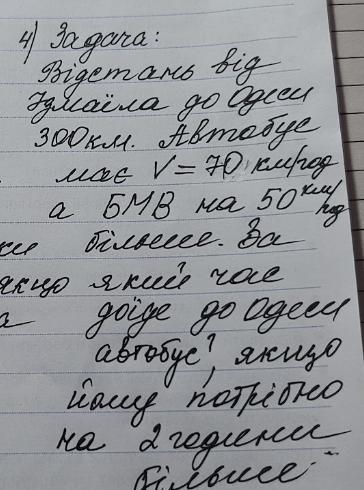 4) Задача:
Відстань від
Ізмаїла до Одеси
300км. Автобус
має V = 70 км/год
а БМВ на 50 км/год
більше. За
якщо який час
доїде до Одеси
автобус?, якщо
йому потрібно
на 2 години
більше